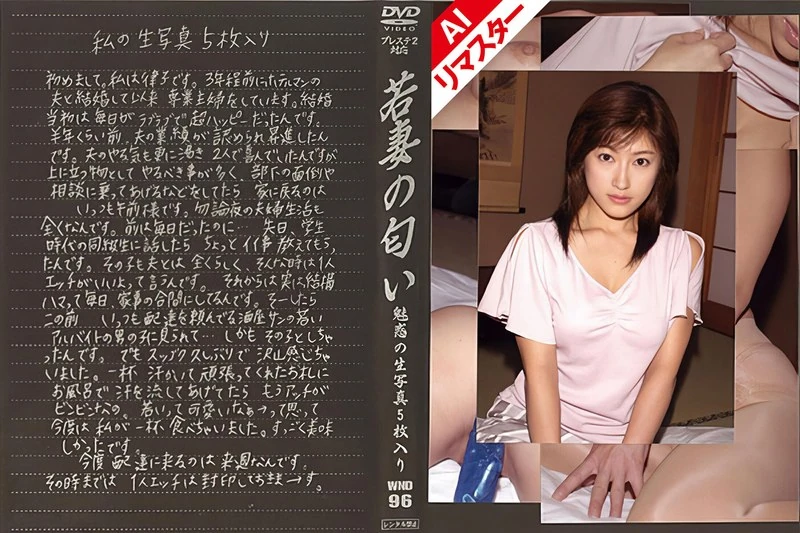 私の生写真5枚入り
初めまして。私は律子です。3年程前にホテルマンの
夫と結婚して以来 専業主婦をしています。結婚
当初は毎日がラブラブで超ハッピーだったんです。
半年くらい前、夫の業績が認められ昇進したん
です。夫のやる気も更に湧き 2人で喜んでいたんですが
上に立つ物として やるべき事が多く、部下の面倒や
相談に乗ってあげるなどをしてたら 家に戻るのは
いつも午前様です。勿論夜の夫婦生活も
全くなんです。前は毎日だったのに… 先日、学生
時代の同級生に話したら ちょっとイイ事教えてもらっ
たんです。その子も夫とは全くらしく、そんな時は1人
エッチがいいよって言うんです。それからは実は結構
ハマって毎日、家事の合間にしてるんです。そーしたら
この前 いつも配達を頼んでる酒屋サンの若い
アルバイトの男の子に見られて… しかもその子としちゃ
ったんです。でもスッゴク久しぶりで沢山感じちゃ
いました。一杯 汗かいて頑張ってくれたお礼に
お風呂で汗を流してあげてたら もうアッチが
ビンビンなの。若いって可愛いなぁーって思って
今度は私が一杯食べちゃいました。すっごく美味
しかったです。
今度配達に来るのは来週なんです。
その時までは 1人エッチは封印しておきまーす。
DVD
VIDEO
プレステ2
対応
若妻の匂い
魅惑の生写真5枚入り
WND
96
レンタル禁止
AI
リマスター